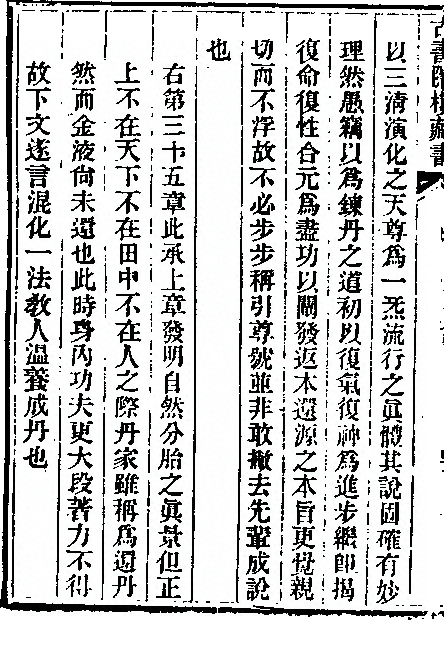 古書隱樓藏書
以三淸演化之天尊爲一炁流行之眞體其說固確有妙
理然愚竊以爲鍊丹之道初以復氣復神爲進步繼卽揭
復命復性合元爲盡功以闡發返本還源之本旨更覺親
切而不浮故不必步步稱引尊號並非敢撇去先輩成說
也
右第三十五章此承上章發明自然分胎之眞景但正
上不在天下不在田中不在人之際丹家雖稱爲還丹
然而金液尙未還也此時身內功夫更大段著力不得
故下文遂言混化一法敎人溫養成丹也